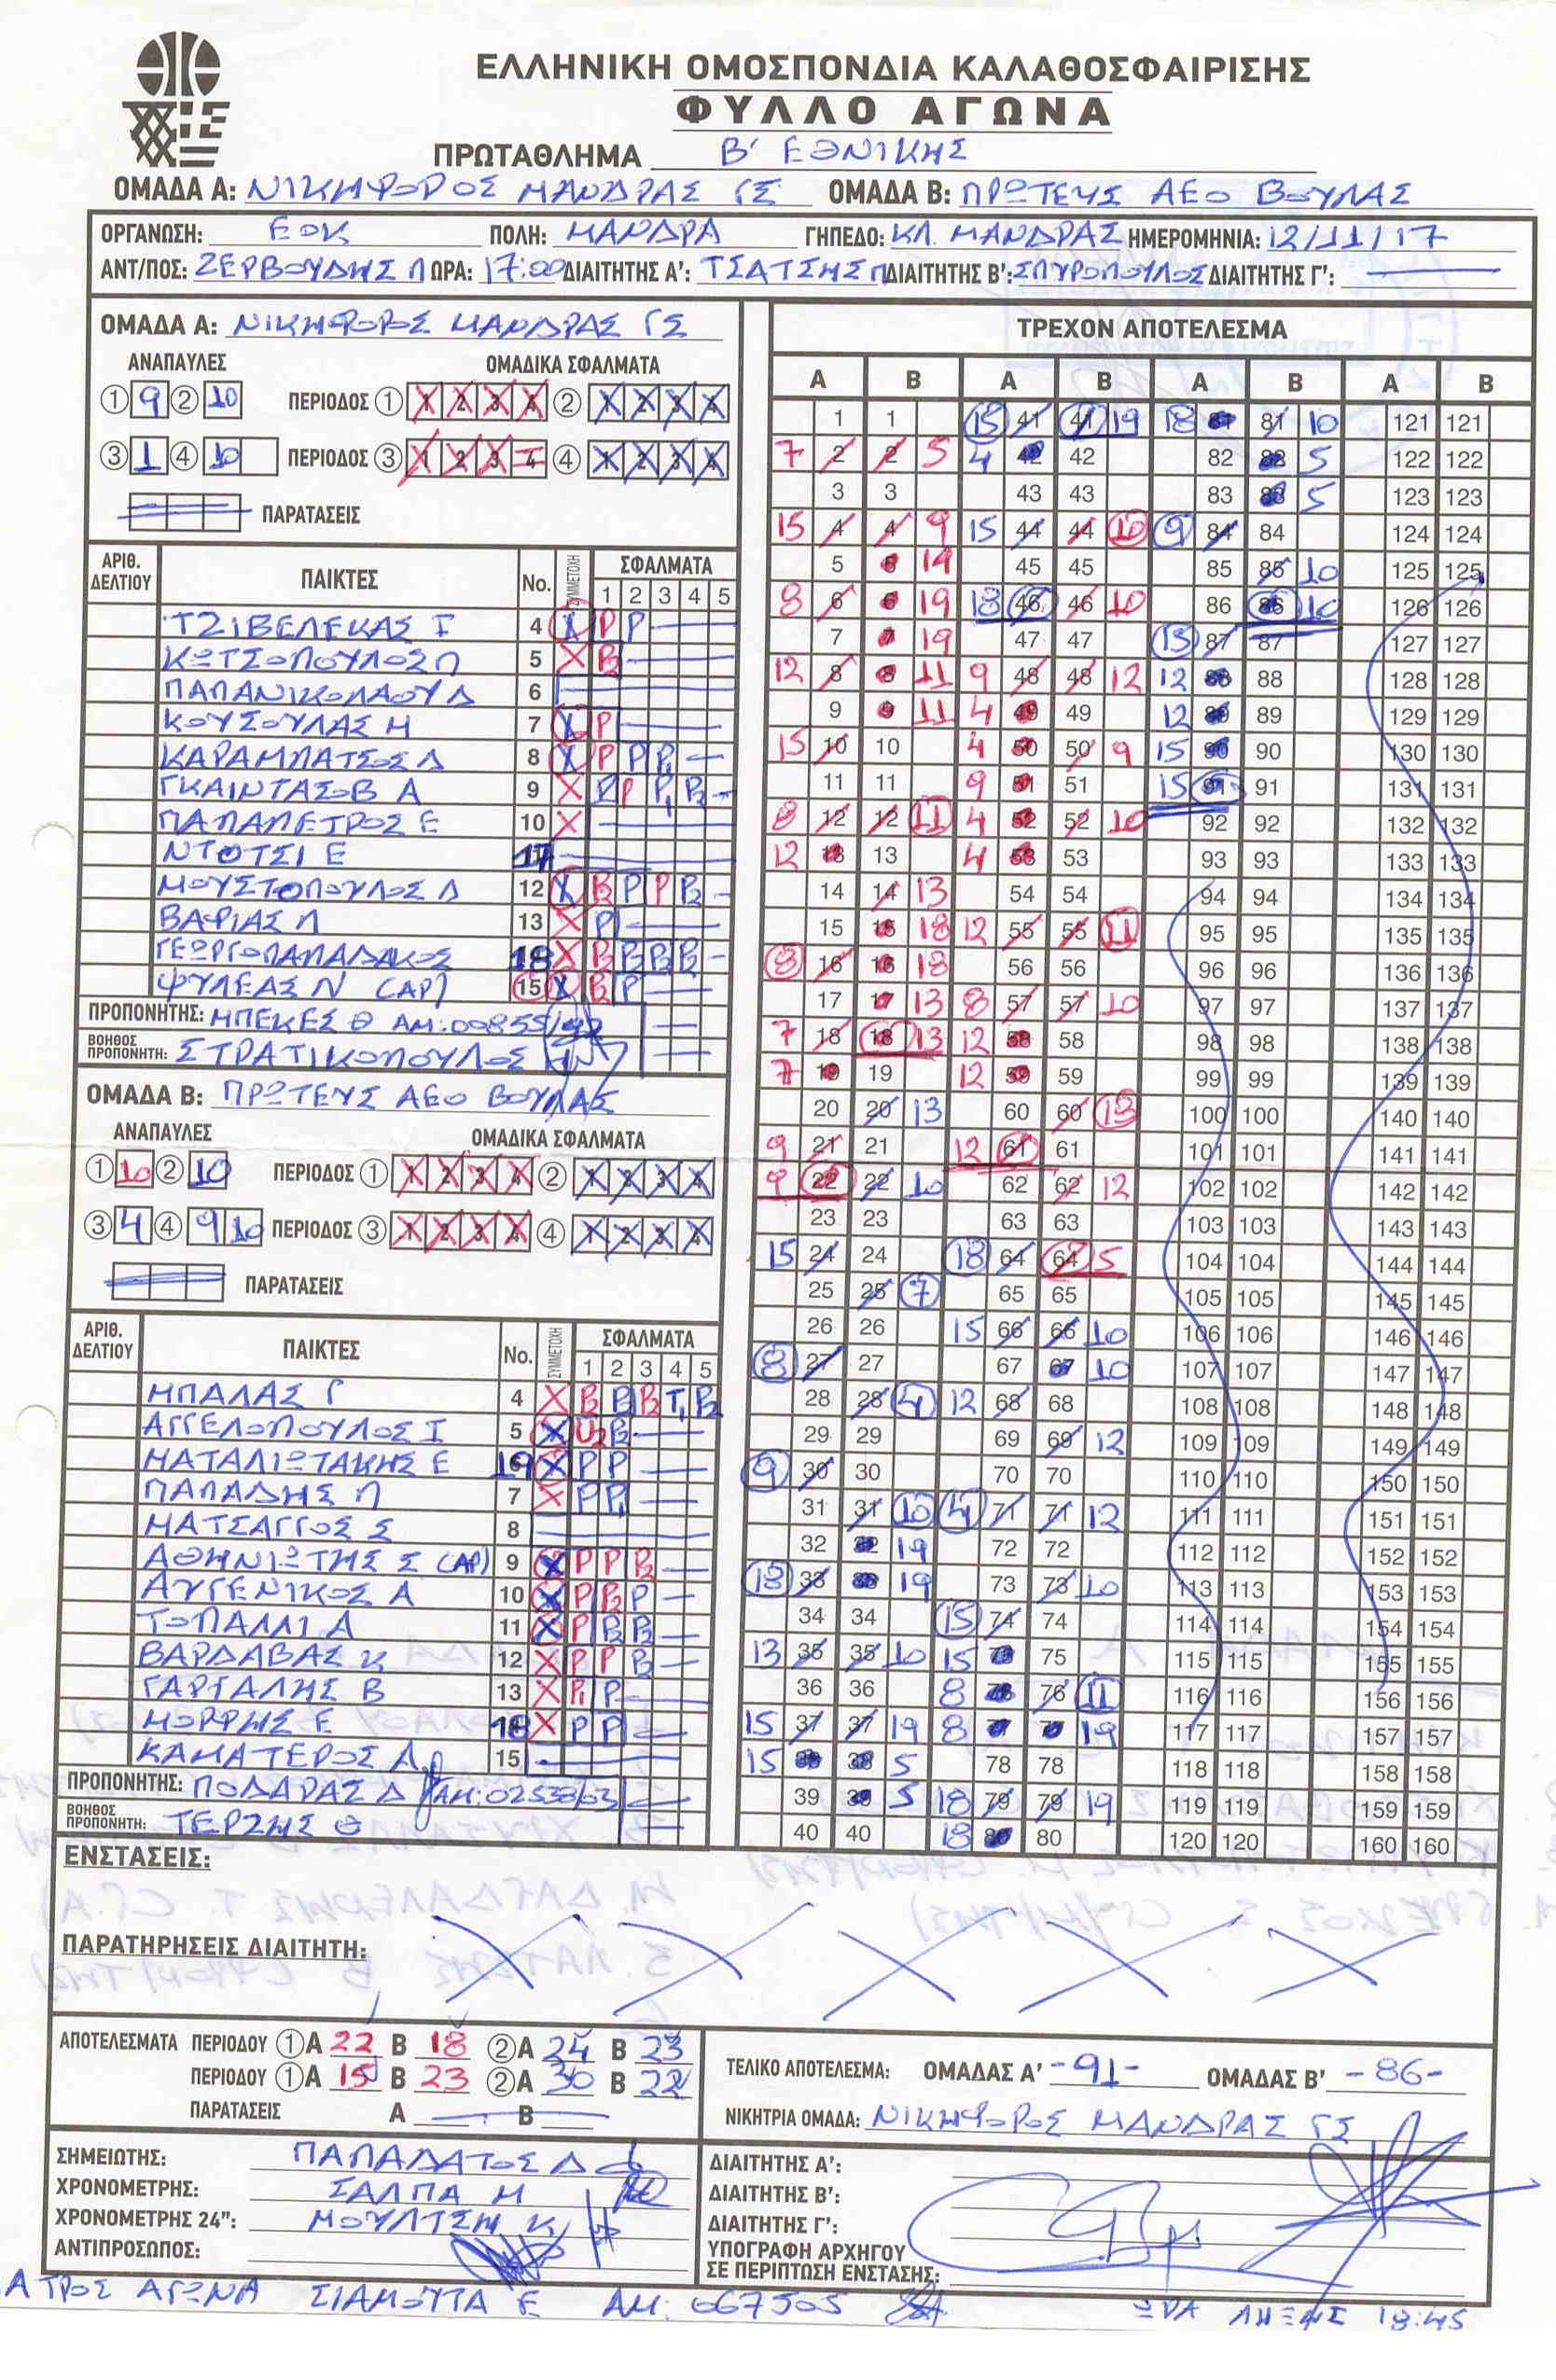 ΕΛΛΗΝΙΚΗ ΟΜΟΣΠΟΝΔΙΑ ΚΑΛΑΘΟΣΦΑΙΡΙΣΗΣ
ΦΥΛΛΟ ΑΓΩΝΑ
ΠΡΩΤΑΘΛΗΜΑ Β' ΕΘΝΙΚΗΣ
ΟΜΑΔΑ Α: ΝΙΚΗΦΟΡΟΣ ΜΑΝΔΡΑΣ ΓΣ ΟΜΑΔΑ Β: ΠΡΩΤΕΥΣ ΑΕΟ ΒΟΥΛΑΣ
ΟΡΓΑΝΩΣΗ: ΕΟΚ ΠΟΛΗ: ΜΑΝΔΡΑ ΓΗΠΕΔΟ: ΚΛ. ΜΑΝΔΡΑΣ ΗΜΕΡΟΜΗΝΙΑ: 12/11/17
ΑΝΤ/ΠΟΣ: ΖΕΡΒΟΥΔΗΣ Π ΩΡΑ: 17:00 ΔΙΑΙΤΗΤΗΣ Α': ΤΣΑΤΣΗΣ Π ΔΙΑΙΤΗΤΗΣ Β': ΣΠΥΡΟΠΟΥΛΟΣ ΔΙΑΙΤΗΤΗΣ Γ':
ΟΜΑΔΑ Α: ΝΙΚΗΦΟΡΟΣ ΜΑΝΔΡΑΣ ΓΣ
ΑΝΑΠΑΥΛΕΣ ΟΜΑΔΙΚΑ ΣΦΑΛΜΑΤΑ
① 9 ② 10 ΠΕΡΙΟΔΟΣ ① 1 2 3 4 ② 1 2 3 4
③ 1 ④ 10 ΠΕΡΙΟΔΟΣ ③ 1 2 3 4 ④ 1 2 3 4
ΠΑΡΑΤΑΣΕΙΣ
ΑΡΙΘ. ΔΕΛΤΙΟΥ ΠΑΙΚΤΕΣ No. ΣΥΜΜΕΤΟΧΗ ΣΦΑΛΜΑΤΑ
1 2 3 4 5
ΤΖΙΒΕΛΕΚΑΣ Γ 4 X P P
ΚΩΤΣΟΠΟΥΛΟΣ Π 5 X
ΠΑΠΑΝΙΚΟΛΑΟΥ Δ 6
ΚΟΥΣΟΥΛΑΣ Μ 7 X P
ΚΑΡΑΜΠΑΤΣΟΣ Δ 8 X P P P1
ΓΚΑΙΝΤΑΣΟΒ Α 9 X P P P1 P2
ΠΑΠΑΠΕΤΡΟΣ Ε 10 X
ΝΤΟΤΣΙ Ε 17
ΜΟΥΣΤΟΠΟΥΛΟΣ Δ 12 X P2 P P P2
ΒΑΦΙΑΣ Π 13 X P
ΓΕΩΡΓΟΠΑΠΑΔΑΚΟΣ 18 X P2 P2 P2 P2
ΦΥΛΕΑΣ Ν (ΑΡ) 15 X P2 P
ΠΡΟΠΟΝΗΤΗΣ: ΜΠΕΚΕΣ Θ
ΒΟΗΘΟΣ ΠΡΟΠΟΝΗΤΗ: ΣΤΡΑΤΙΚΟΠΟΥΛΟΣ
ΟΜΑΔΑ Β: ΠΡΩΤΕΥΣ ΑΕΟ ΒΟΥΛΑΣ
ΑΝΑΠΑΥΛΕΣ ΟΜΑΔΙΚΑ ΣΦΑΛΜΑΤΑ
① 10 ② 10 ΠΕΡΙΟΔΟΣ ① 1 2 3 4 ② 1 2 3 4
③ 4 ④ 9 10 ΠΕΡΙΟΔΟΣ ③ 1 2 3 4 ④ 1 2 3 4
ΠΑΡΑΤΑΣΕΙΣ
ΑΡΙΘ. ΔΕΛΤΙΟΥ ΠΑΙΚΤΕΣ No. ΣΥΜΜΕΤΟΧΗ ΣΦΑΛΜΑΤΑ
1 2 3 4 5
ΜΠΑΛΑΣ Γ 4 X P2 P2 P2 T1 P2
ΑΓΓΕΛΟΠΟΥΛΟΣ Ι 5 X U2 P2
ΜΑΤΑΛΙΩΤΑΚΗΣ Ε 19 X P P
ΠΑΠΑΔΗΣ Π 7 X P P1
ΜΑΤΣΑΓΓΟΣ Σ 8
ΑΘΗΝΙΩΤΗΣ Σ (ΑΡ) 9 X P P P2
ΑΥΓΕΝΙΚΟΣ Α 10 X P P2 P
ΤΟΠΑΛΛΙ Α 11 X P P2 P2
ΒΑΡΔΑΒΑΣ Κ 12 X P P P2
ΓΑΡΓΑΛΗΣ Β 13 X P1 P
ΜΟΡΡΗΣ Ε 18 X P P
ΚΑΜΑΤΕΡΟΣ Α 15
ΠΡΟΠΟΝΗΤΗΣ: ΠΟΔΑΡΑΣ Δ
ΒΟΗΘΟΣ ΠΡΟΠΟΝΗΤΗ: ΤΕΡΖΗΣ Θ
ΤΡΕΧΟΝ ΑΠΟΤΕΛΕΣΜΑ
Α Β Α Β Α Β Α Β
1 1 15 41 41 19 18 81 81 10 121 121
7 2 2 5 4 42 42 82 82 5 122 122
3 3 43 43 83 83 5 123 123
15 4 4 9 15 44 44 10 9 84 84 124 124
5 5 19 45 45 85 85 10 125 125
8 6 6 19 18 46 46 10 86 86 10 126 126
7 7 19 47 47 13 87 87 127 127
12 8 8 11 9 48 48 12 12 88 88 128 128
9 9 11 4 49 49 12 89 89 129 129
15 10 10 4 50 50 9 15 90 90 130 130
11 11 9 51 51 15 91 91 131 131
8 12 12 11 4 52 52 10 92 92 132 132
12 13 13 4 53 53 93 93 133 133
14 14 13 54 54 94 94 134 134
15 15 18 12 55 55 11 95 95 135 135
8 16 16 18 56 56 96 96 136 136
17 17 13 8 57 57 10 97 97 137 137
7 18 18 13 12 58 58 98 98 138 138
7 19 19 12 59 59 99 99 139 139
20 20 13 60 60 13 100 100 140 140
9 21 21 12 61 61 101 101 141 141
9 22 22 10 62 62 12 102 102 142 142
23 23 63 63 103 103 143 143
15 24 24 18 64 64 5 104 104 144 144
25 25 7 65 65 105 105 145 145
26 26 15 66 66 10 106 106 146 146
8 27 27 67 67 10 107 107 147 147
28 28 4 12 68 68 108 108 148 148
29 29 69 69 12 109 109 149 149
9 30 30 70 70 110 110 150 150
31 31 10 4 71 71 12 111 111 151 151
32 32 19 72 72 112 112 152 152
13 33 33 19 73 73 10 113 113 153 153
34 34 15 74 74 114 114 154 154
13 35 35 10 15 75 75 115 115 155 155
36 36 8 76 76 11 116 116 156 156
15 37 37 19 8 77 77 19 117 117 157 157
15 38 38 5 78 78 118 118 158 158
39 39 5 18 79 79 19 119 119 159 159
40 40 18 80 80 120 120 160 160
ΕΝΣΤΑΣΕΙΣ:
ΠΑΡΑΤΗΡΗΣΕΙΣ ΔΙΑΙΤΗΤΗ:
ΑΠΟΤΕΛΕΣΜΑΤΑ ΠΕΡΙΟΔΟΥ ① Α 22 Β 18 ② Α 24 Β 23
ΠΕΡΙΟΔΟΥ ① Α 15 Β 23 ② Α 30 Β 22
ΠΑΡΑΤΑΣΕΙΣ Α Β
ΤΕΛΙΚΟ ΑΠΟΤΕΛΕΣΜΑ: ΟΜΑΔΑΣ Α' -91- ΟΜΑΔΑΣ Β' -86-
ΝΙΚΗΤΡΙΑ ΟΜΑΔΑ: ΝΙΚΗΦΟΡΟΣ ΜΑΝΔΡΑΣ ΓΣ
ΣΗΜΕΙΩΤΗΣ: ΠΑΠΑΔΑΤΟΣ Δ
ΧΡΟΝΟΜΕΤΡΗΣ: ΣΑΛΠΑ Μ
ΧΡΟΝΟΜΕΤΡΗΣ 24": ΜΟΥΛΤΣΗ Κ
ΑΝΤΙΠΡΟΣΩΠΟΣ:
ΔΙΑΙΤΗΤΗΣ Α':
ΔΙΑΙΤΗΤΗΣ Β':
ΔΙΑΙΤΗΤΗΣ Γ':
ΥΠΟΓΡΑΦΗ ΑΡΧΗΓΟΥ
ΣΕ ΠΕΡΙΠΤΩΣΗ ΕΝΣΤΑΣΗΣ:
ΙΑΤΡΟΣ ΑΓΩΝΑ ΣΙΑΜΟΥΤΑ Ε ΑΜ: 667505 ΩΡΑ ΛΗΞΗΣ 18:45